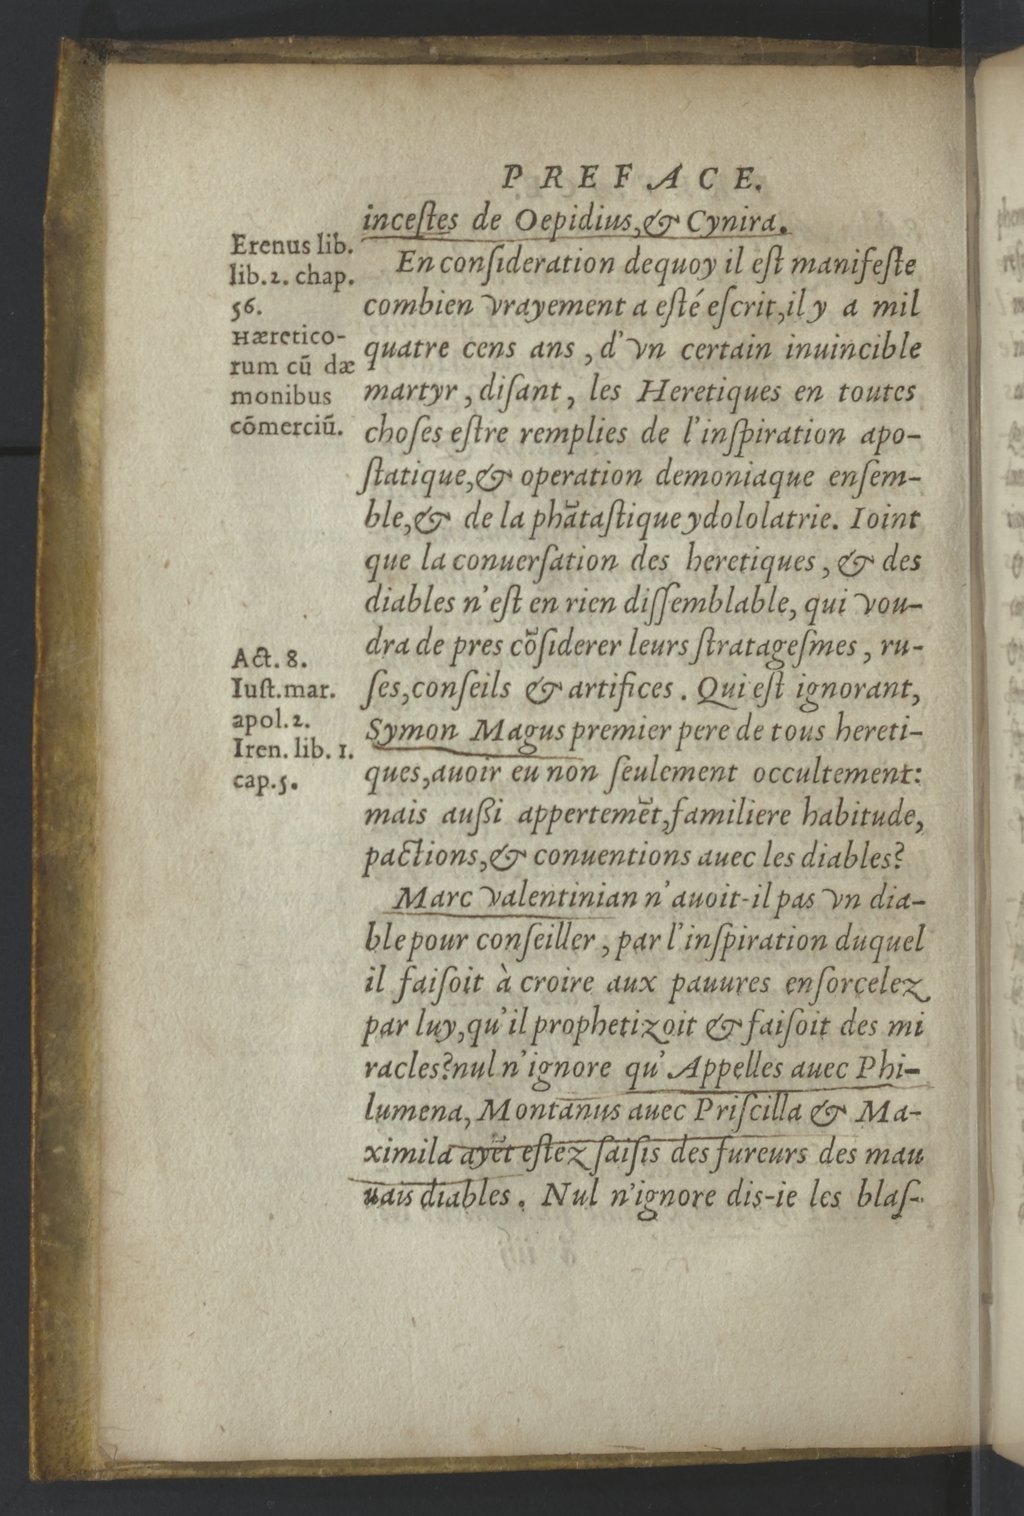 PREFACE.
inceſtes de Oepidius, & Cynira.
En conſideration dequoy il eſt manifeſte
combien vrayement a eſté eſcrit, il y a mil
quatre cens ans, d'vn certain inuincible
martyr, diſant, les Heretiques en toutes
choſes eſtre remplies de l'inſpiration apo-
ſtatique, & operation demoniaque enſem-
ble, & de la phãtaſtique ydololatrie. Ioint
que la conuerſation des heretiques, & des
diables n'eſt en rien diſſemblable, qui vou-
dra de pres cõſiderer leurs ſtratageſmes, ru-
ſes, conſeils & artifices. Qui eſt ignorant,
Symon Magus premier pere de tous hereti-
ques, auoir eu non ſeulement occultement:
mais auſſi appertemẽt, familiere habitude,
pactions, & conuentions auec les diables?
Marc Valentinian n'auoit-il pas vn dia-
ble pour conſeiller, par l'inſpiration duquel
il faiſoit à croire aux pauures enſorcelez
par luy, qu'il prophetizoit & faiſoit des mi
racles? nul n'ignore qu'Appelles auec Phi-
lumena, Montanus auec Priſcilla & Ma-
ximila ayẽt eſtez ſaiſis des fureurs des mau
uais diables. Nul n'ignore dis-ie les blaſ-
Erenus lib.
lib. 2. chap.
56.
Hæretico-
rum cũ dæ
monibus
cõmerciũ.
Act. 8.
Iuſt. mar.
apol. 2.
Iren. lib. 1.
cap. 5.